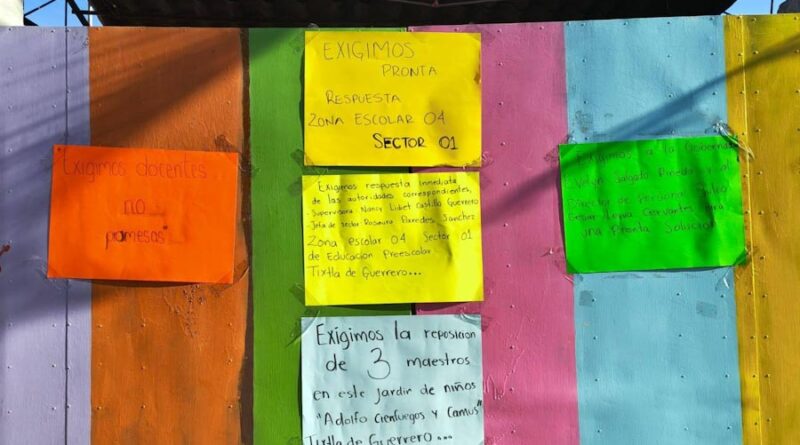 EXIGIMOS
PRONTA
RESPUESTA
ZONA ESCOLAR 04
SECTOR 01
Exigimos docentes
no
promesas
Exigimos respuesta inmediata
de las autoridades correspondientes,
-Supervisora Nancy Libet Castillo Guerrero
-Jefa de sector Rosaura Paredes Sánchez
Zona escolar 04 Sector 01
de Educación Preescolar
Tixtla de Guerrero...
Exigimos a la Gobernadora
Evelyn Salgado Pineda y al
Director de Personal Julio
Cesar Cervantes para
una Pronta Solución
Exigimos la reposición
de 3 maestros
en este jardin de niños
"Adolfo Cienfuegos y Camus"
Tixtla de Guerrero...